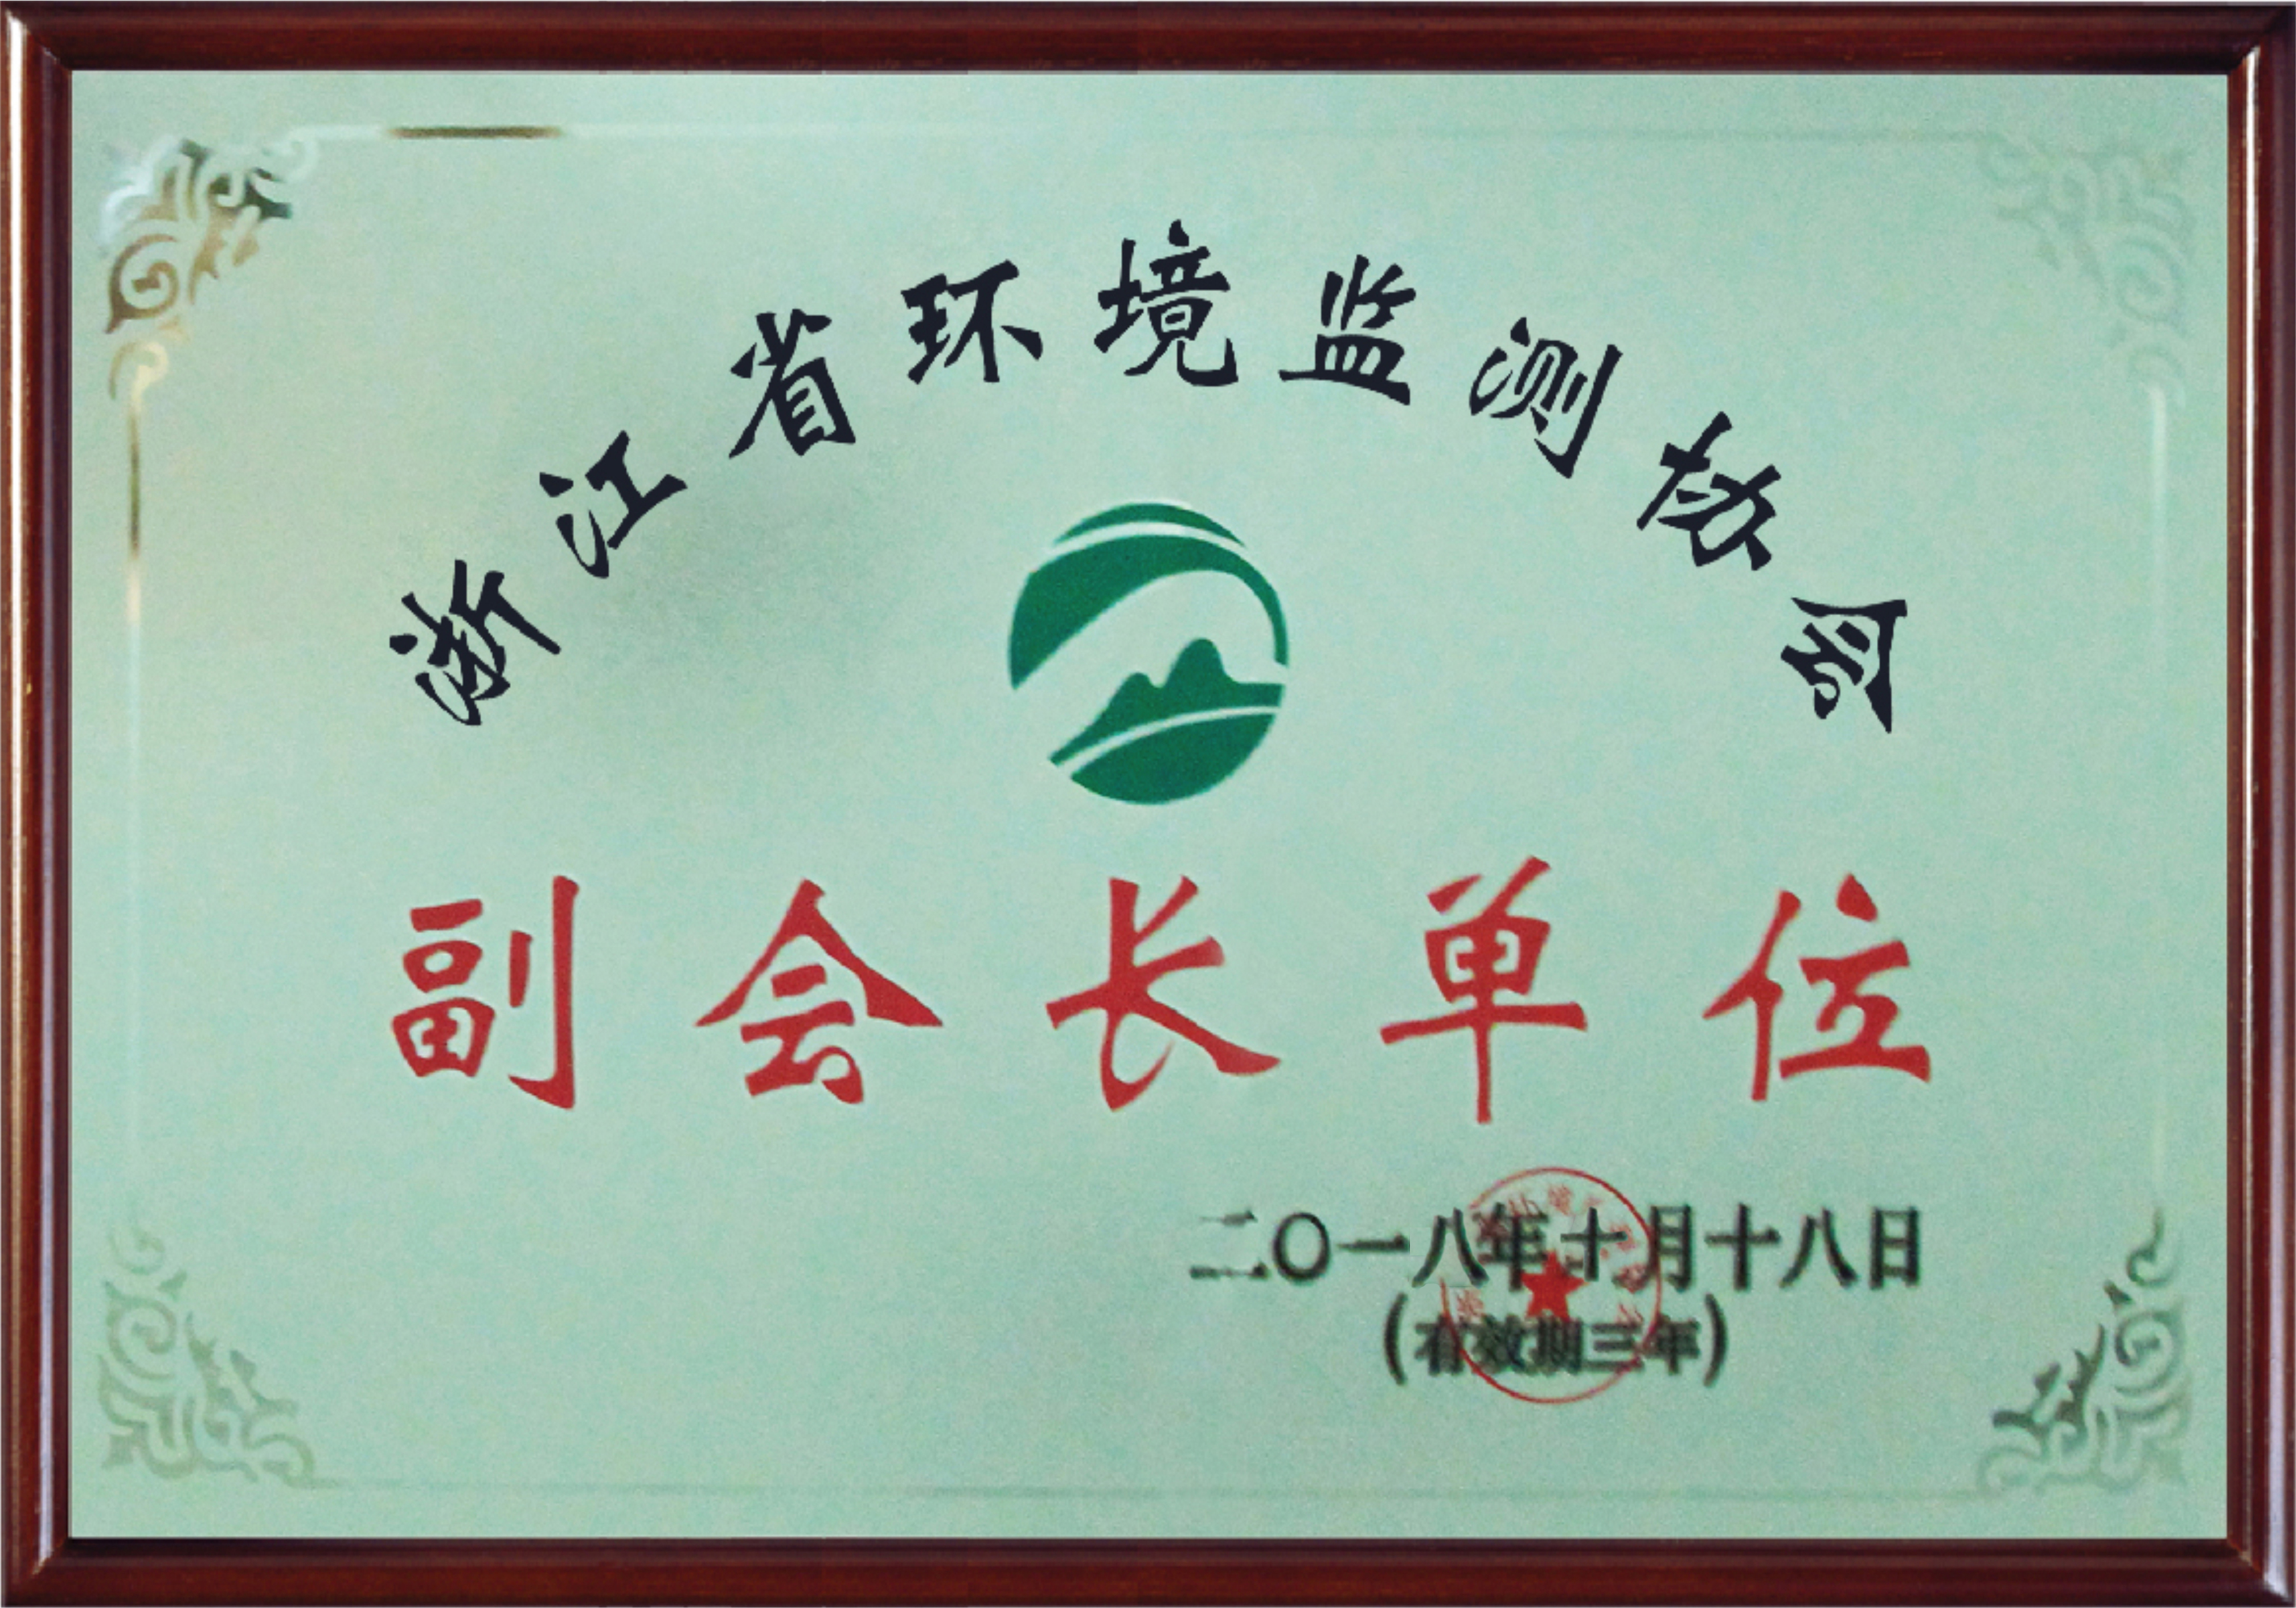 浙江省环境监测协会
副会长单位
二〇一八年十月十八日
(有效期三年)